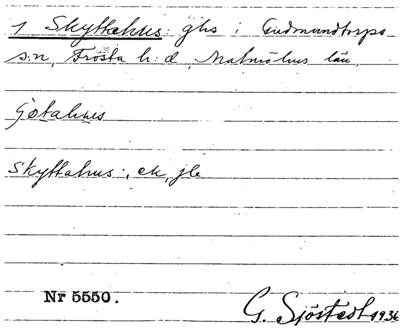 1 Skyttahus: ghs i Gudmundtorps-
s:n, Frosta h:d, Malmöhus län.
Götahus
Skyttahus:, ek, jb
Nr 5550.
G. Sjöstedt 1936